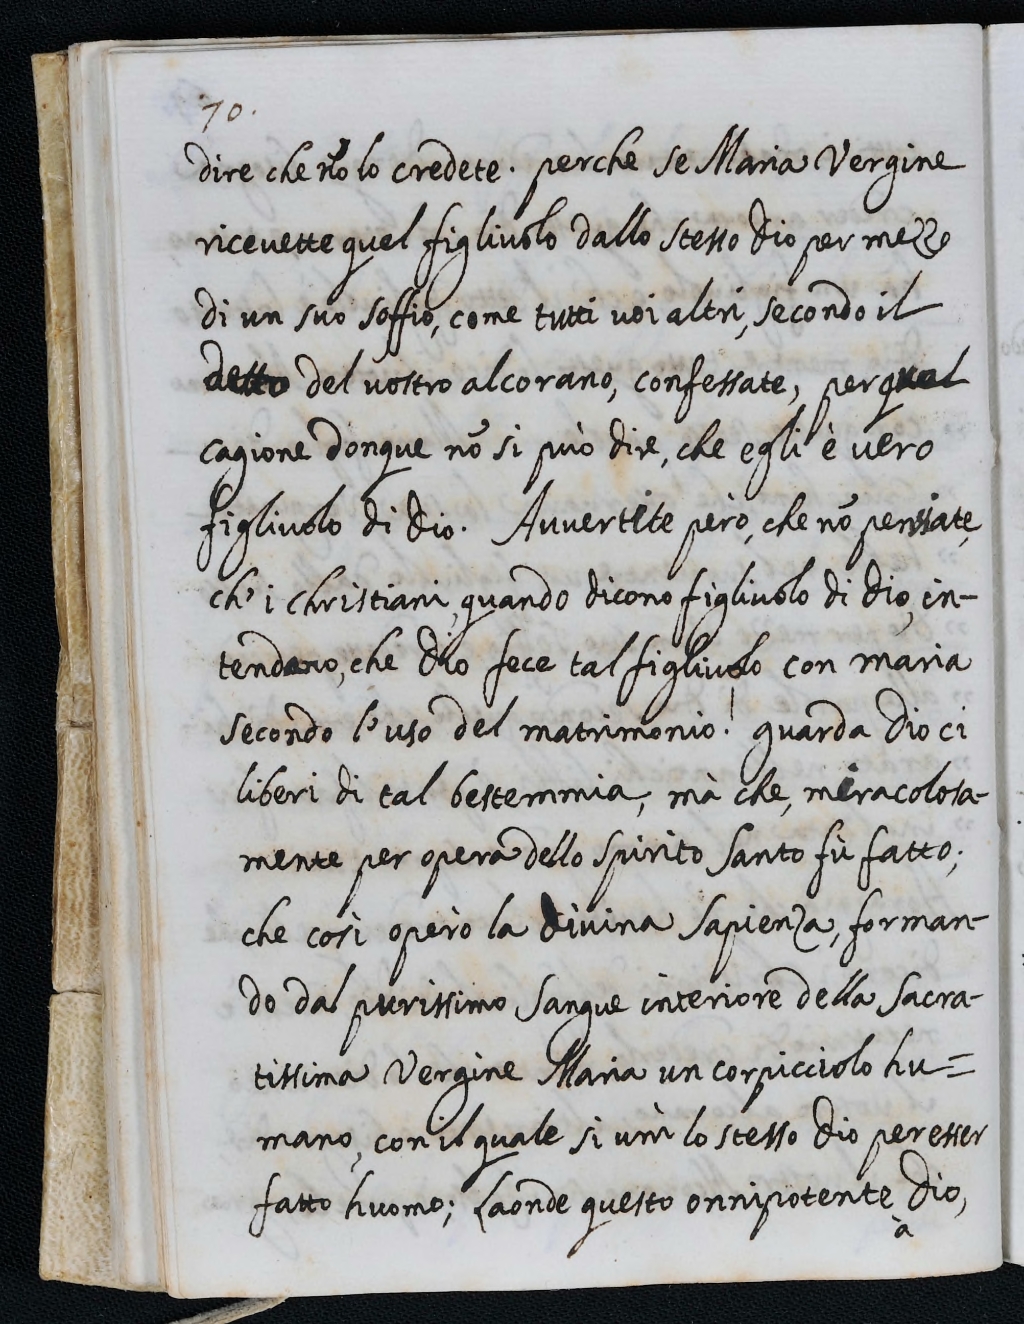 70.
dire che nõ lo credete. perche se Maria Vergine
riceuette quel figliuolo dallo stesso Dio per mezzo
di un suo soffio, come tutti uoi altri, secondo il
detto del uostro alcorano, confessate, perqual
cagione donque nõ si può dire, che egli è uero
figliuolo di Dio. Auuertite però, che nõ pensiate,
ch' i christiani, quando dicono figliuolo di Dio, in-
tendano, che Dio fece tal figliuolo con maria
secondo l'uso del matrimonio! guarda Dio ci
liberi di tal bestemmia, mà che, miracolosa-
mente per opera dello spirito santo fù fatto;
che così operò la diuina sapienza, forman-
do dal purissimo sangue interiore della sacra-
tissima Vergine Maria un corpicciolo hu=
mano, con il quale si unì lo stesso Dio per esser
fatto huomo; Laonde questo onnipotente Dio,
à